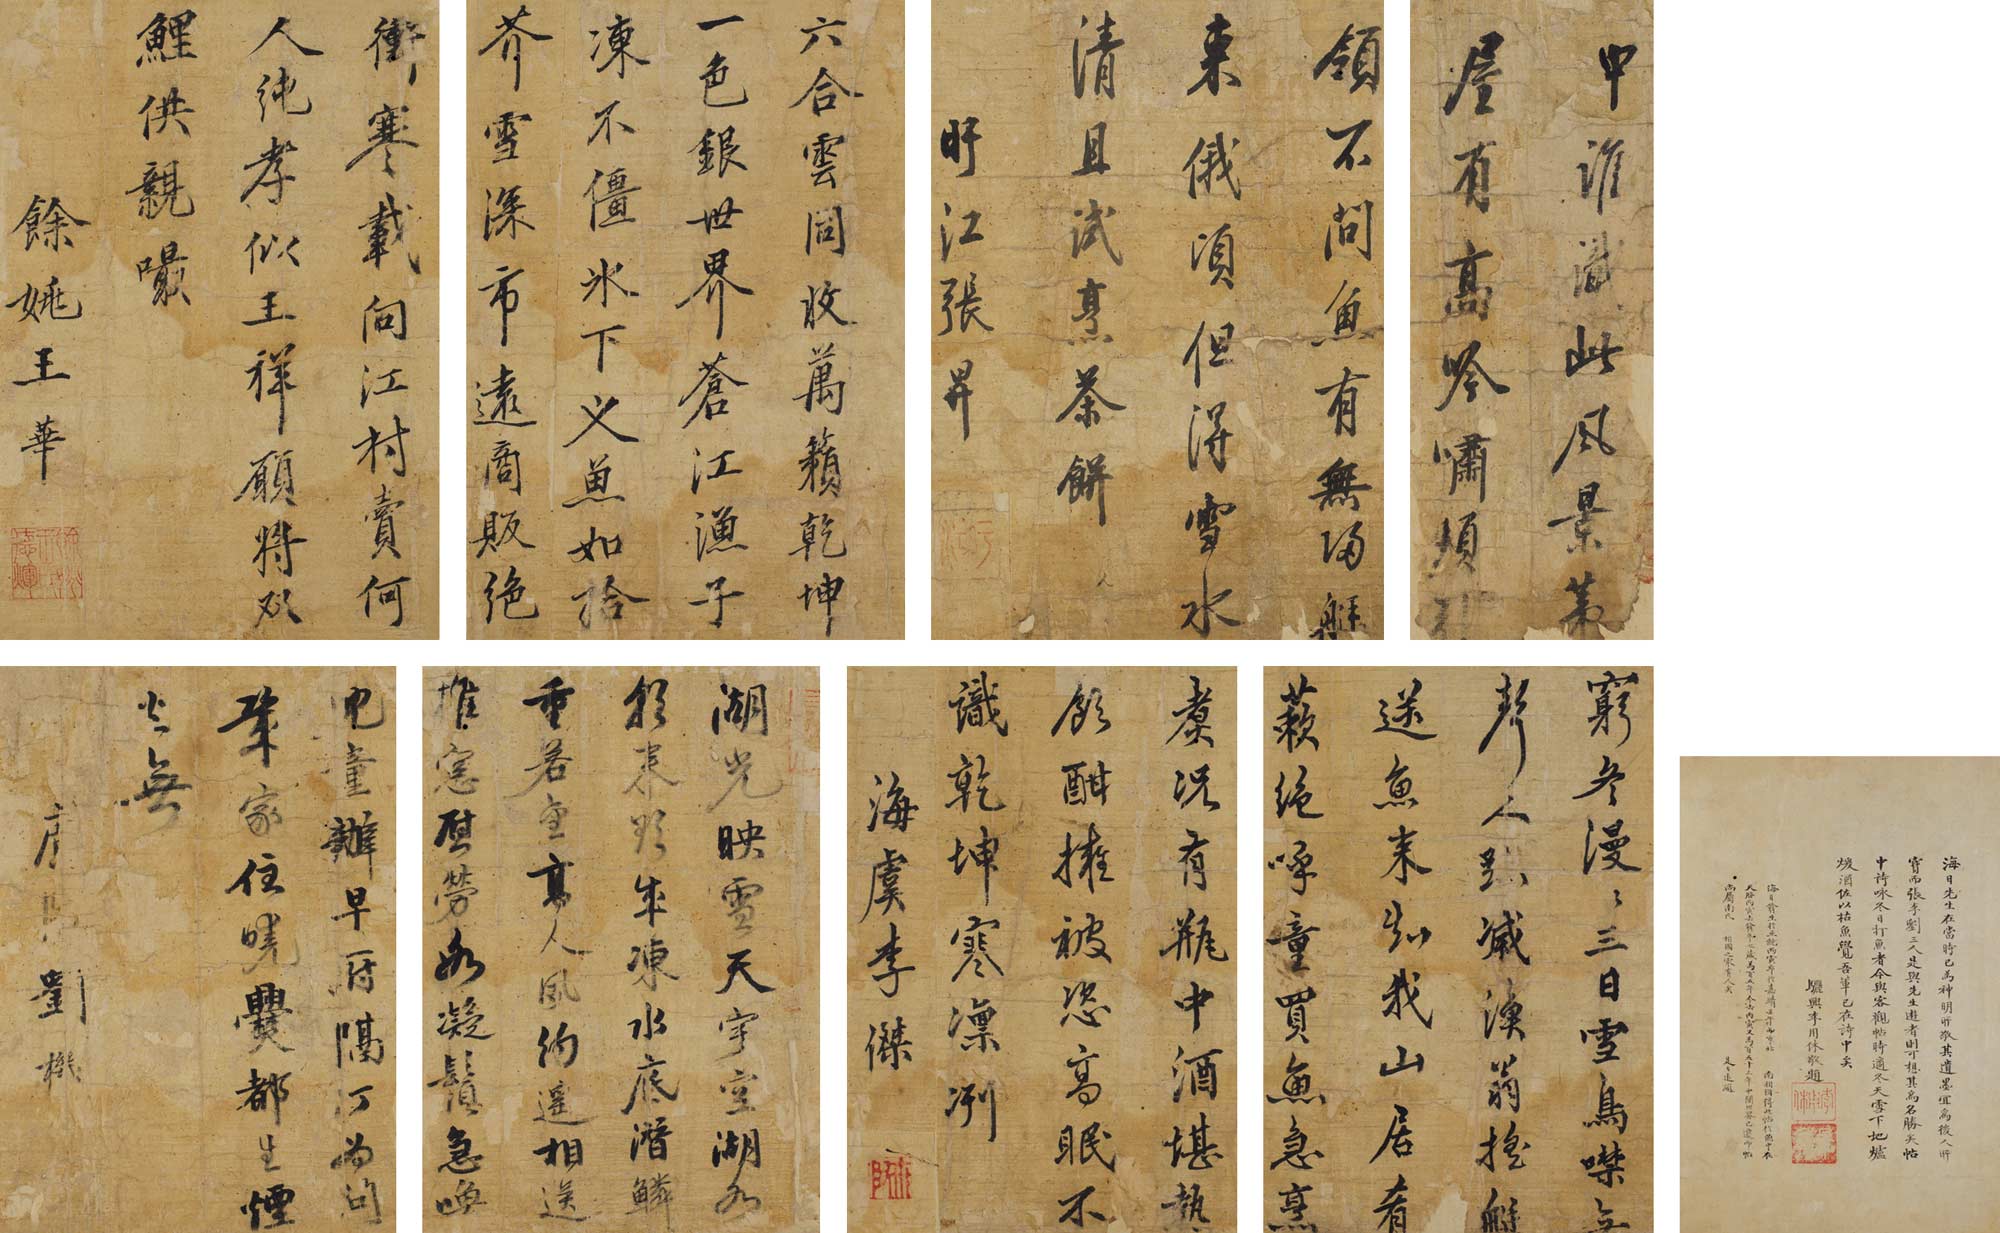 中誰識此風景第
屋有高吟嘯煩
領不問魚有無歸艇
東俄頃但得雪水
清且試烹茶餅
盱江張昇
六合雲同收萬籟乾坤
一色銀世界蒼江漁子
凍不僵冰下义魚如拾
芥雪深市遠商販絕
衝寒載向江村賣何
人純孝似王祥願將双
鯉供親嘬
餘姚王華
窮冬漫〻三日雪鳥噤無
聲人跡滅漁翁搖艇
送魚来知我山居肴
蔌絕呼童買魚急烹
煑況有瓶中酒堪熱
飲酣擁被恣高眠不
識乾坤寒凛冽
海虞李傑
湖光映雪天宇空湖水
凍水底潛鱗
重若高人風約遥相送
推窓慰勞凝鬚急喚
童辦早厨隔江為問
家住曉爨都生煙
也無
劉機
海日先生在當時已為神明所敬其遺墨宜為後人所
寳而張李劉三人是與先生遊者則可想其為名勝矣帖
中詩咏冬日打魚者今與客觀帖時適冬天雪下地爐
煖酒佐以枯魚覺吾輩已在詩中矣
驪興李用休敬題